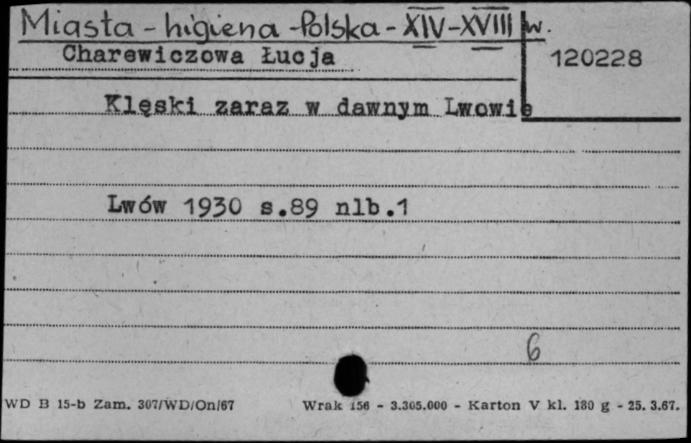 Miasta - higiena - Polska - XIV-XVIII w.
Charewiczowa Łucja
120228
Klęski zaraz w dawnym Lwowie
Lwów 1930 s.89 nlb.1
6
WD B 15-b Zam. 307/WD/On/67 Wrak 156 - 3.305.000 - Karton V kl. 180 g - 25. 3.67.